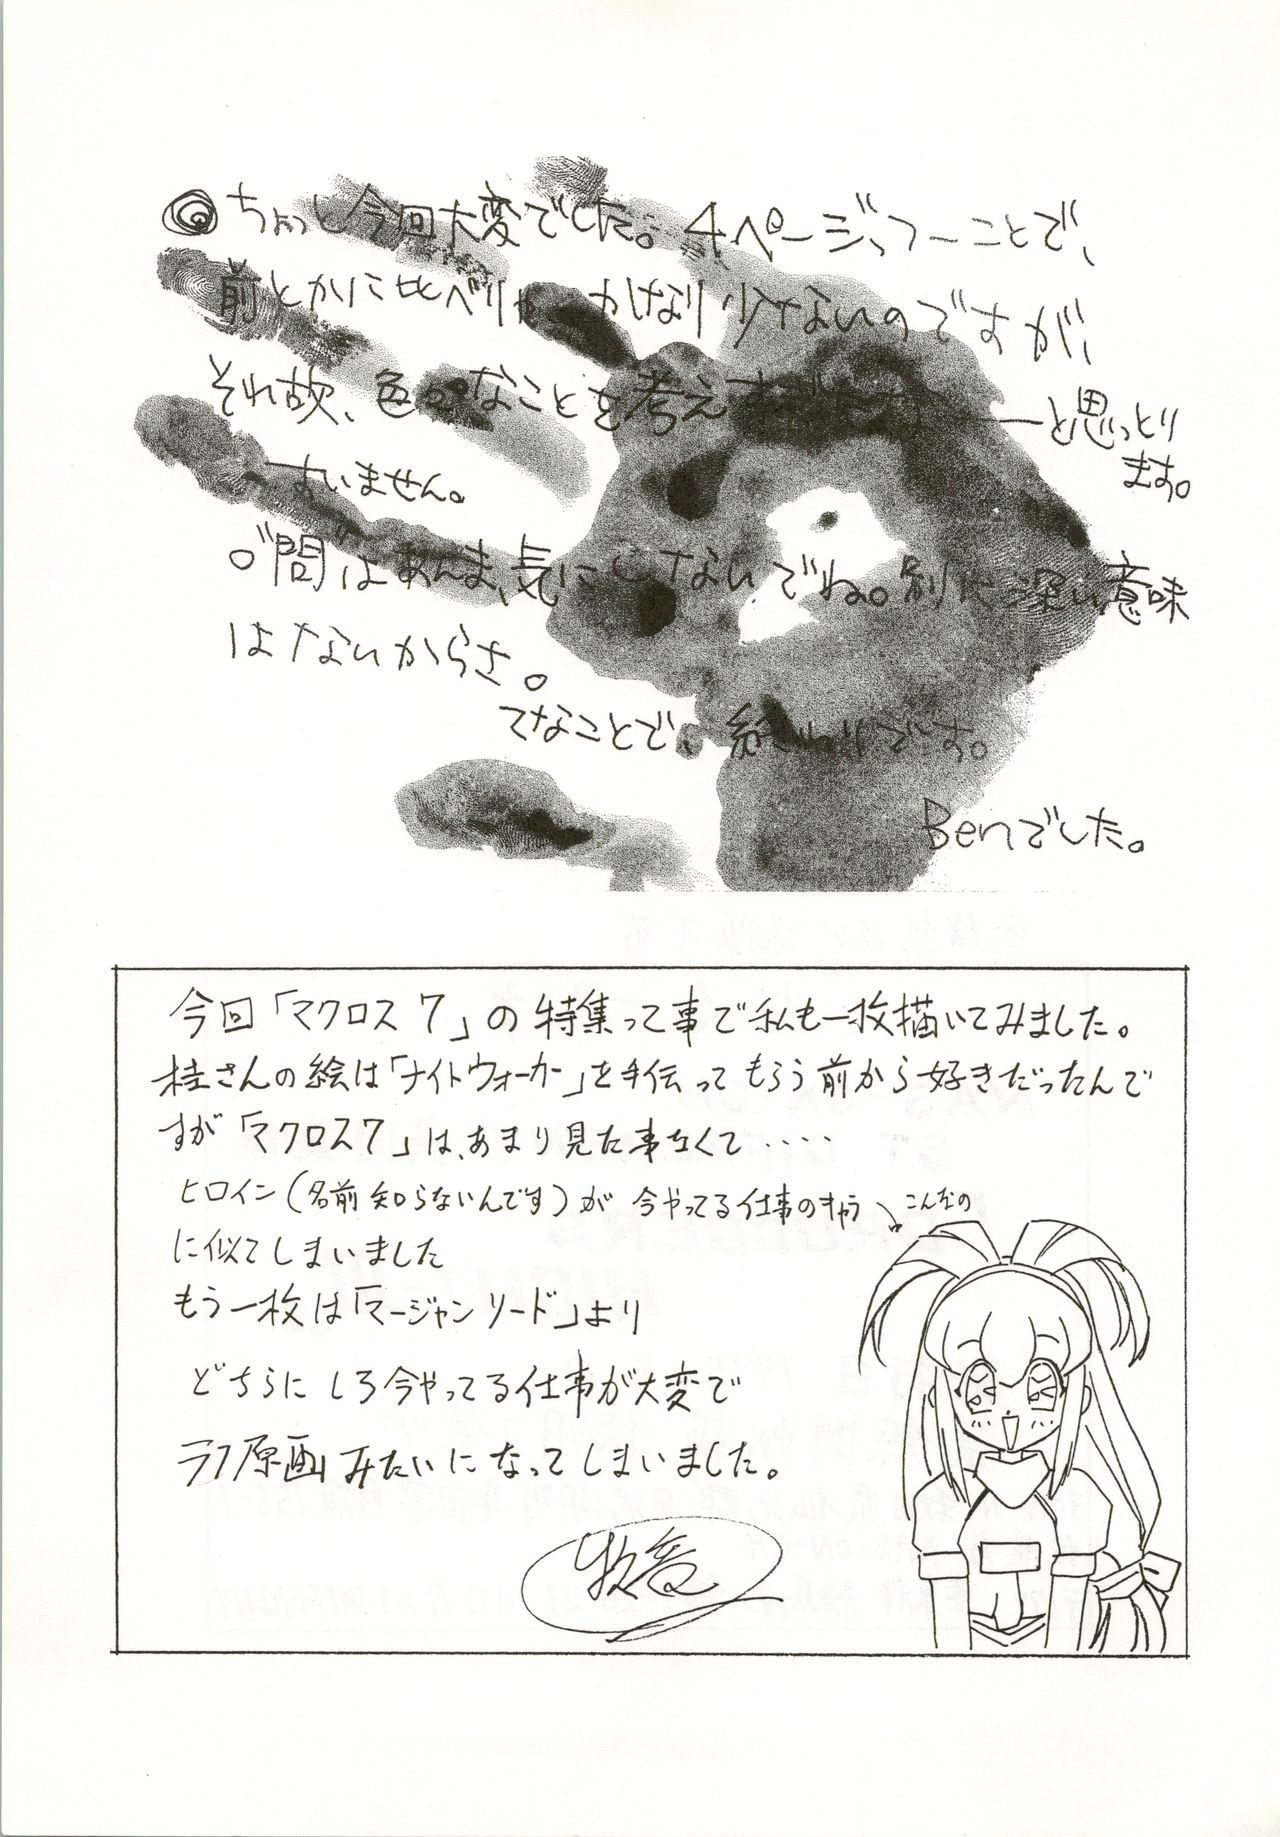 ちょっと今回大変でした。4ページっつーことで、
前とかに比べりゃかなり少ないのですが、
それ故、色々なことを考え ーと思っとり
ます。
すいません。
○"問"はあんま、気にしないでね。別に深い意味
はないからさ。
てなことで、終わりです。
Benでした。
今回「マクロス7」の特集って事で私も一枚描いてみました。
桂さんの絵は「ナイトウォーカー」を手伝ってもらう前から好きだったんで
すが「マクロス7」は、あまり見た事なくて‥‥
ヒロイン(名前知らないんです)が今やってる仕事のキャラ
こんなの
に似てしまいました
もう一枚は「マージャンソード」より
どちらにしろ今やってる仕事が大変で
ラフ原画みたいになってしまいました。